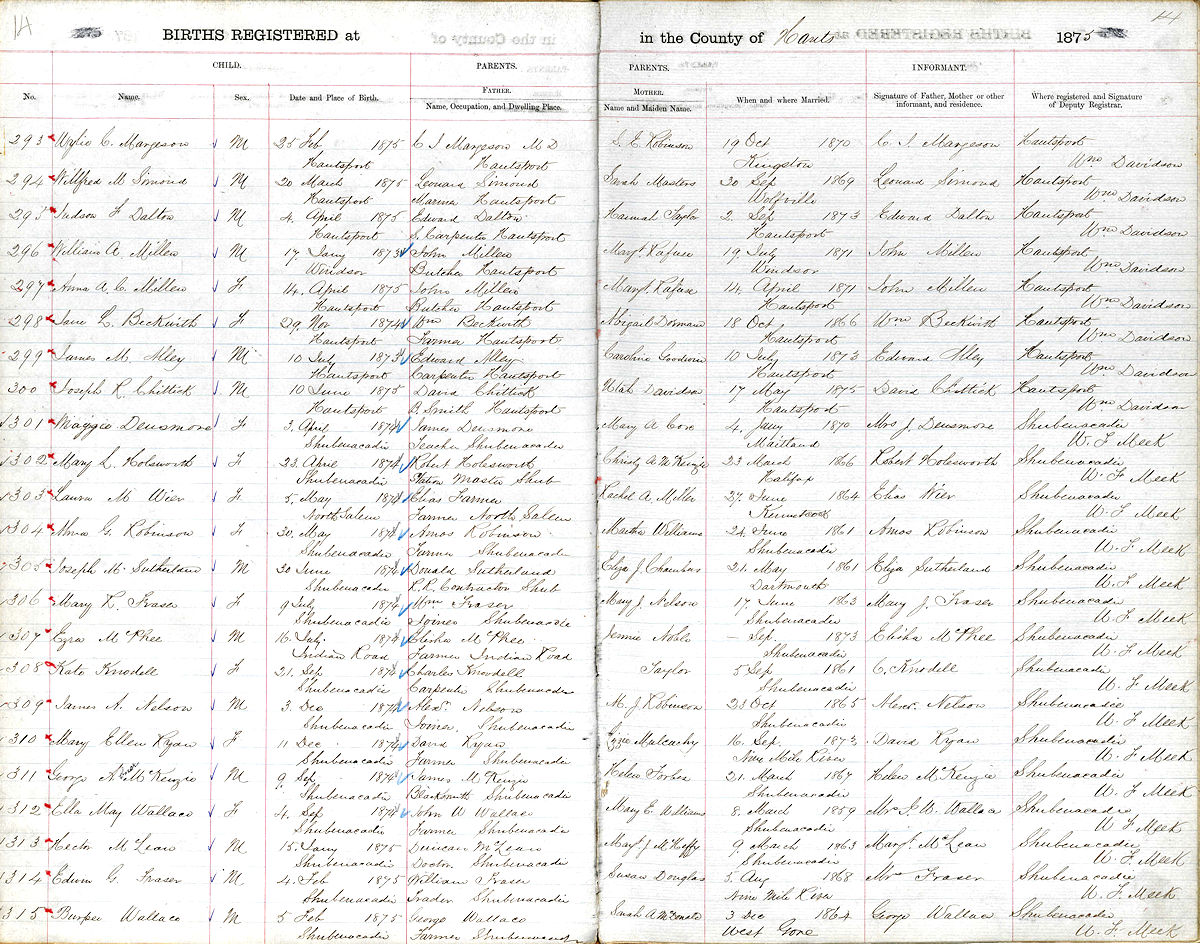 14
BIRTHS REGISTERED at in the County of Hants 1875
CHILD. PARENTS. PARENTS. INFORMANT.
FATHER. MOTHER.
No. Name. Sex. Date and Place of Birth. Name, Occupation, and Dwelling Place. Name and Maiden Name. When and where Married. Signature of Father, Mother or other informant, and residence. Where registered and Signature of Deputy Registrar.
293 Wylie C. Margeson M 25 Feb 1875 C I Margeson M D S. E. Robinson 19 Oct 1870 C. I. Margeson Hantsport
Hantsport Hantsport Kingston Wm Davidson
294 Wilfred M Simond M 20 March 1875 Leonard Simond Sarah Masters 30 Sep 1869 Leonard Simond Hantsport
Hantsport Mariner Hantsport Wolfville Wm Davidson
295 Judson F Dalton M 4 April 1875 Edward Dalton Hannah Taylor 2 Sep 1873 Edward Dalton Hantsport
Hantsport S. Carpenter Hantsport Hantsport Wm Davidson
296 William A. Millen M 17 Jany 1873 John Millen Margt. Rafuse 19 July 1871 John Millen Hantsport
Windsor Butcher Hantsport Windsor Wm Davidson
297 Anna A. C. Millen F 14 April 1875 John Millen Margt. Rafuse 14 April 1871 John Millen Hantsport
Hantsport Butcher Hantsport Hantsport Wm Davidson
298 Jane L. Beckwith F 29 Nov 1874 Wm Beckwith Abigail Dorman 18 Oct 1866 Wm Beckwith Hantsport
Hantsport Farmer Hantsport Hantsport Wm Davidson
299 James M. Alley M 10 July 1873 Edward Alley Caroline Goodwin 10 July 1873 Edward Alley Hantsport
Hantsport Carpenter Hantsport Hantsport Wm Davidson
300 Joseph R. Chittick M 10 June 1875 David Chittick Davidson 17 May 1875 David Chittick Hantsport
Hantsport B. Smith Hantsport Hantsport Wm Davidson
301 Maggie Densmore F 3 April 1874 James Densmore Mary A Core 4 Jany 1870 Mrs J. Densmore Shubenacadie
Shubenacadie Teacher Shubenacadie Maitland W. F. Meek
302 Mary L. Holesworth F 23 April 1874 Robert Holesworth Christy A McKenzie 23 March 1866 Robert Holesworth Shubenacadie
Shubenacadie Station Master Shub Halifax W. F. Meek
303 Laura M Wier F 5 May 1874 Elias Farmer Rachel A. Miller 27 June 1864 Elias Wier Shubenacadie
North Salem Farmer North Salem Kennetcook W. F. Meek
304 Alma G. Robinson F 30 May 1874 Amos Robinson Martha Williams 24 June 1861 Amos Robinson Shubenacadie
Shubenacadie Farmer Shubenacadie Shubenacadie W. F. Meek
305 Joseph M. Sutherland M 30 June 1874 Donald Sutherland Eliza J. Chambers 21 May 1861 Eliza Sutherland Shubenacadie
Shubenacadie R. R. Contractor Shub Dartmouth W. F. Meek
306 Mary L. Fraser F 9 July 1874 Wm Fraser Mary J. Nelson 17 June 1863 Mary J. Fraser Shubenacadie
Shubenacadie Joiner Shubenacadie Shubenacadie W. F. Meek
307 Ezra McPhee M 16 July 1874 Elisha McPhee Jennie Noble – Sep 1873 Elisha McPhee Shubenacadie
Indian Road Farmer Indian Road Shubenacadie W. F. Meek
308 Kate Knodell F 21 Sep 1874 Charles Knodell Taylor 5 Sep 1861 C. Knodell Shubenacadie
Shubenacadie Carpenter Shubenacadie Shubenacadie W. F. Meek
309 James A. Nelson M 3 Dec 1874 Alexr. Nelson M. J Robinson 23 Oct 1865 Alexr. Nelson Shubenacadie
Shubenacadie Joiner Shubenacadie Shubenacadie W. F. Meek
310 Mary Ellen Ryan F 11 Dec 1874 David Ryan Lizzie Mulcachy 16 Sep 1873 David Ryan Shubenacadie
Shubenacadie Farmer Shubenacadie Nine Mile River W. F. Meek
311 George A. McKenzie M 9 Sep 1874 James McKenzie Helen Forbes 21 March 1867 Helen McKenzie Shubenacadie
Shubenacadie Blacksmith Shubenacadie Shubenacadie W. F. Meek
312 Ella May Wallace F 4 Sep 1874 John W Wallace Mary E. Williams 8 March 1859 Mrs J. W. Wallace Shubenacadie
Shubenacadie Farmer Shubenacadie Shubenacadie W. F. Meek
313 Hector McLean M 15 Jany 1875 Duncan McLean Margt J McHeffy 9 March 1863 Margt. McLean Shubenacadie
Shubenacadie Doctor Shubenacadie Shubenacadie W. F. Meek
314 Edwin G. Fraser M 4 Feb 1875 William Fraser Susan Douglas 5 Aug 1868 Mrs Fraser Shubenacadie
Shubenacadie Trader Shubenacadie Nine Mile River W. F. Meek
315 Burpee Wallace M 5 Feb 1875 George Wallace Sarah A McDonald 3 Dec 1864 George Wallace Shubenacadie
Shubenacadie Farmer Shubenacadie West Gore W. F. Meek